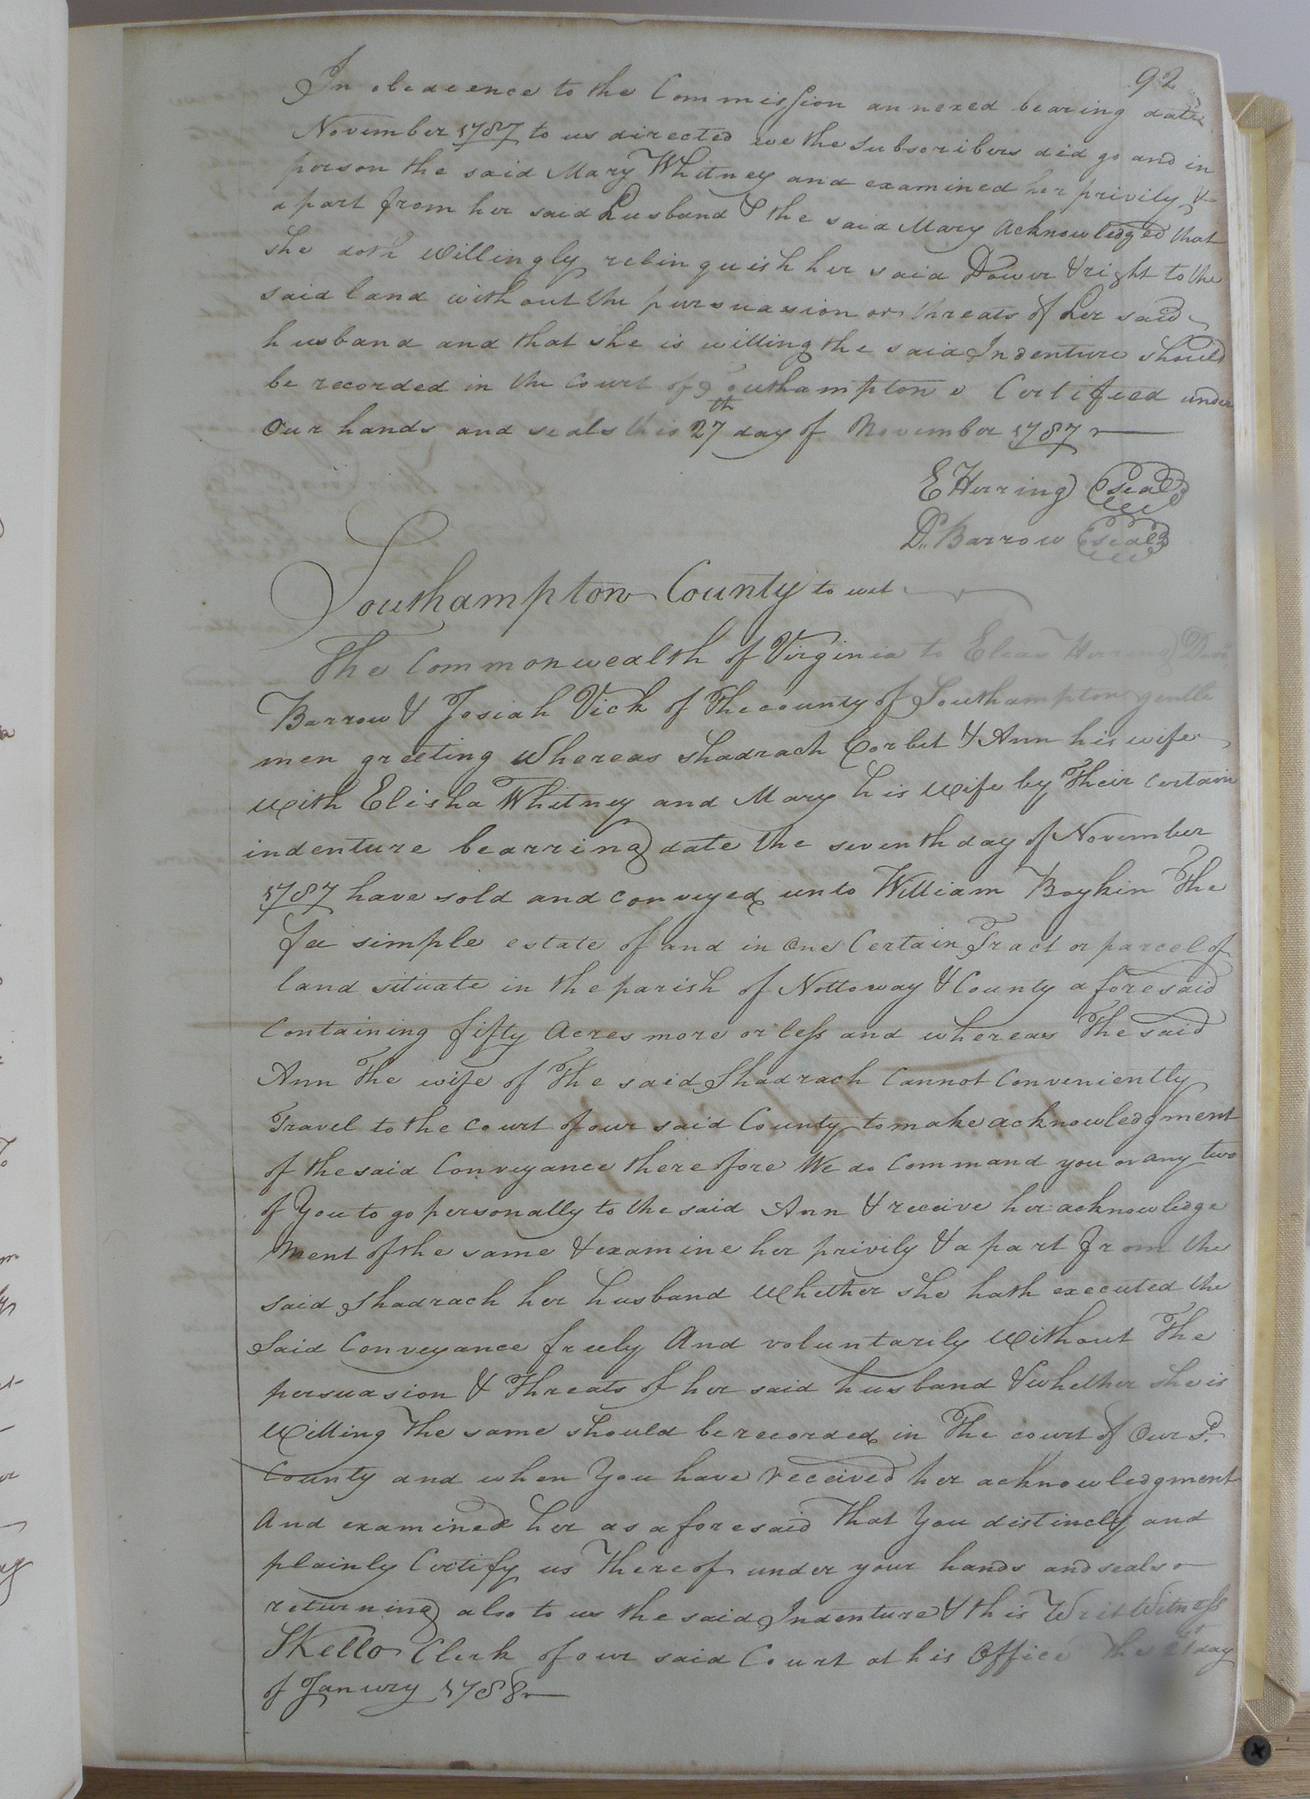 92
In obedeence to the Commission annexed bearing date
November 1787 to us directed we the subscribers did go and in
person the said Mary Whitney and examined her privily &
apart from her said husband & the said Mary acknowledged that
she doth willingly relinquish her said Dower & right to the
said land without the persuasion or threats of her said
husband and that she is willing the said Indenture should
be recorded in the Court of Southampton Certifeed under
Our hands and seals this 27th day of November 1787
E Herring seal
D. Barrow seal
Southampton County to wit
The Commonwealth of Virginia to Herring
Barrow & Josiah Vick of The county of Southampton gentle
men greeting Whereas shadrach Corbit & Ann his wife
with Elisha Whitney and Mary his wife by Their certain
indenture bearring date the seventh day of November
1787 have sold and conveyed unto William Boykin The
fee simple estate of and in One Certain Tract or parcel of
land situate in the parish of Nottoway & County aforesaid
Containing fifty Acres more or less and whereas The said
Ann The wife of The said Shadrach Cannot Conveniently
Travel to the Court of our said County to make acknowledgment
of the said Conveyance therefore We do Command you or any two
of You to go personally to the said Ann & receive her acknowledge
ment of the same & examine her privily & apart from the
said Shadrach her husband Whether she hath executed the
Said Conveyance freely And voluntarily Without The
persuasion & Threats of her said husband & whether she is
Willing The same should be recorded in The court of Our Sd.
County and when You have received her acknowledgment
And examined her as aforesaid That You distinctly and
plainly Certify us Thereof under your hands and seals
returning also to us the said Indenture & this Writ Witness
SKello Clerk of our said Court at his Office The day
of Janury 1788